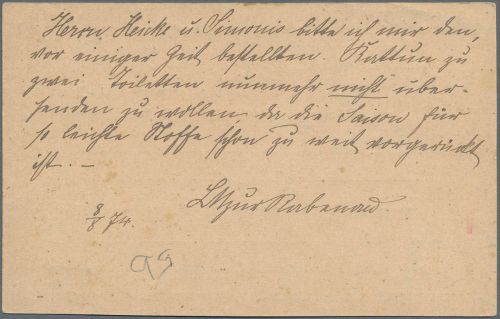 Herrn Heicke u. Simonis bitte ich mir den,
vor einiger Zeit bestellten Kattun zu
zwei Toiletten nunmehr nicht über-
senden zu wollen, da die Saison für
so leichte Stoffe schon zu weit vorgerückt
ist. -
zur Rabenau.
8/8 74.